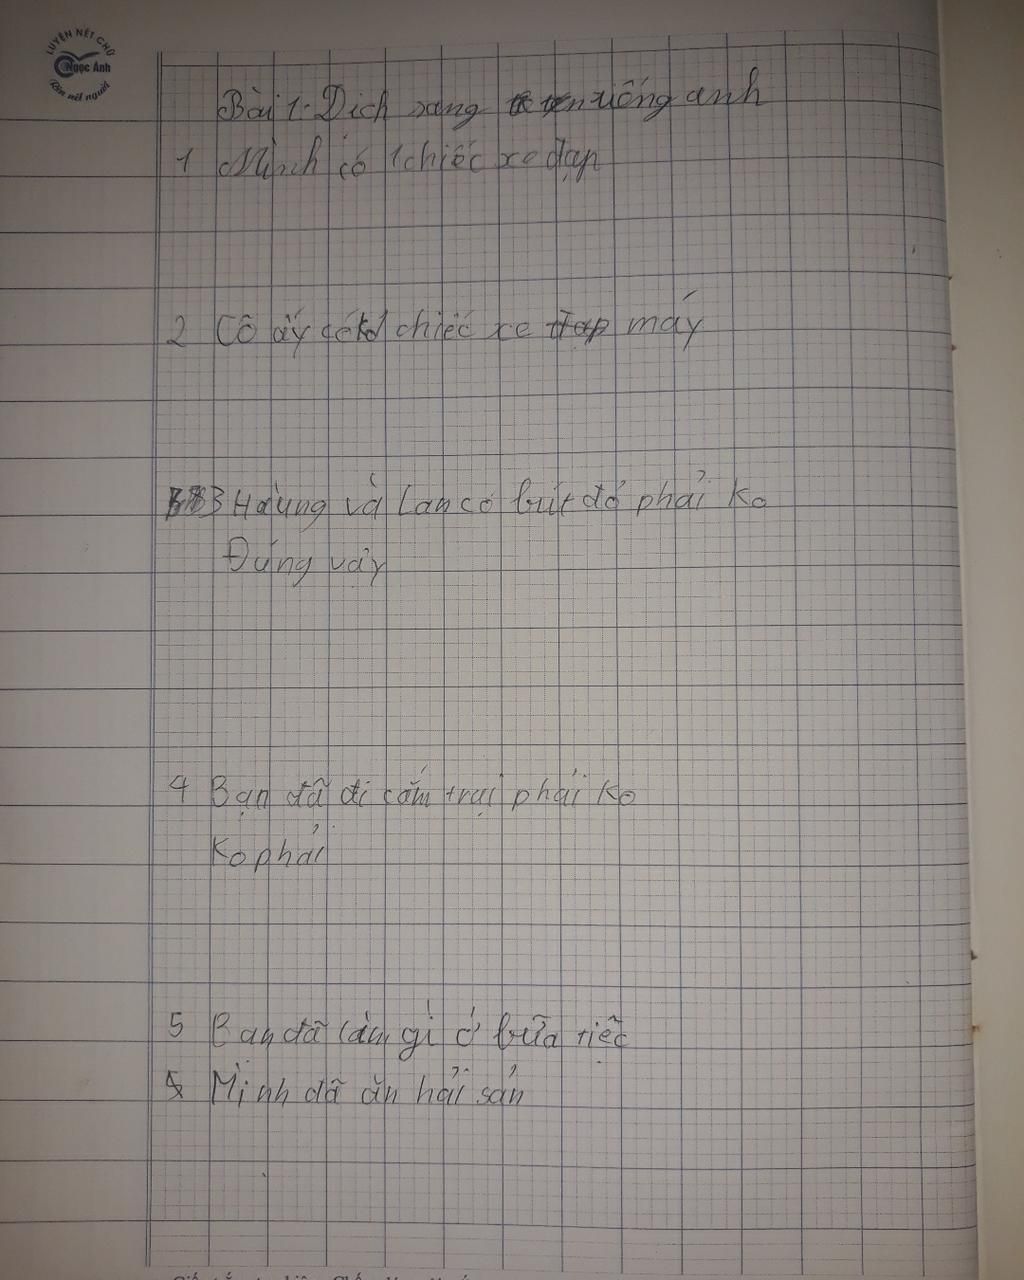 LUYỆN NÉT CHỮ
Ngọc Ánh
Rèn nết người
Bài 1. Dịch sang tiếng anh
1 Mình có 1 chiếc xe đạp
2 Cô ấy có 1 chiếc xe máy
3 Hùng và Lan có bút đó phải ko
Đúng vậy
4 Bạn đã đi cắm trại phải ko
Ko phải
5 Bạn đã làm gì ở bữa tiệc
Mình đã ăn hải sản